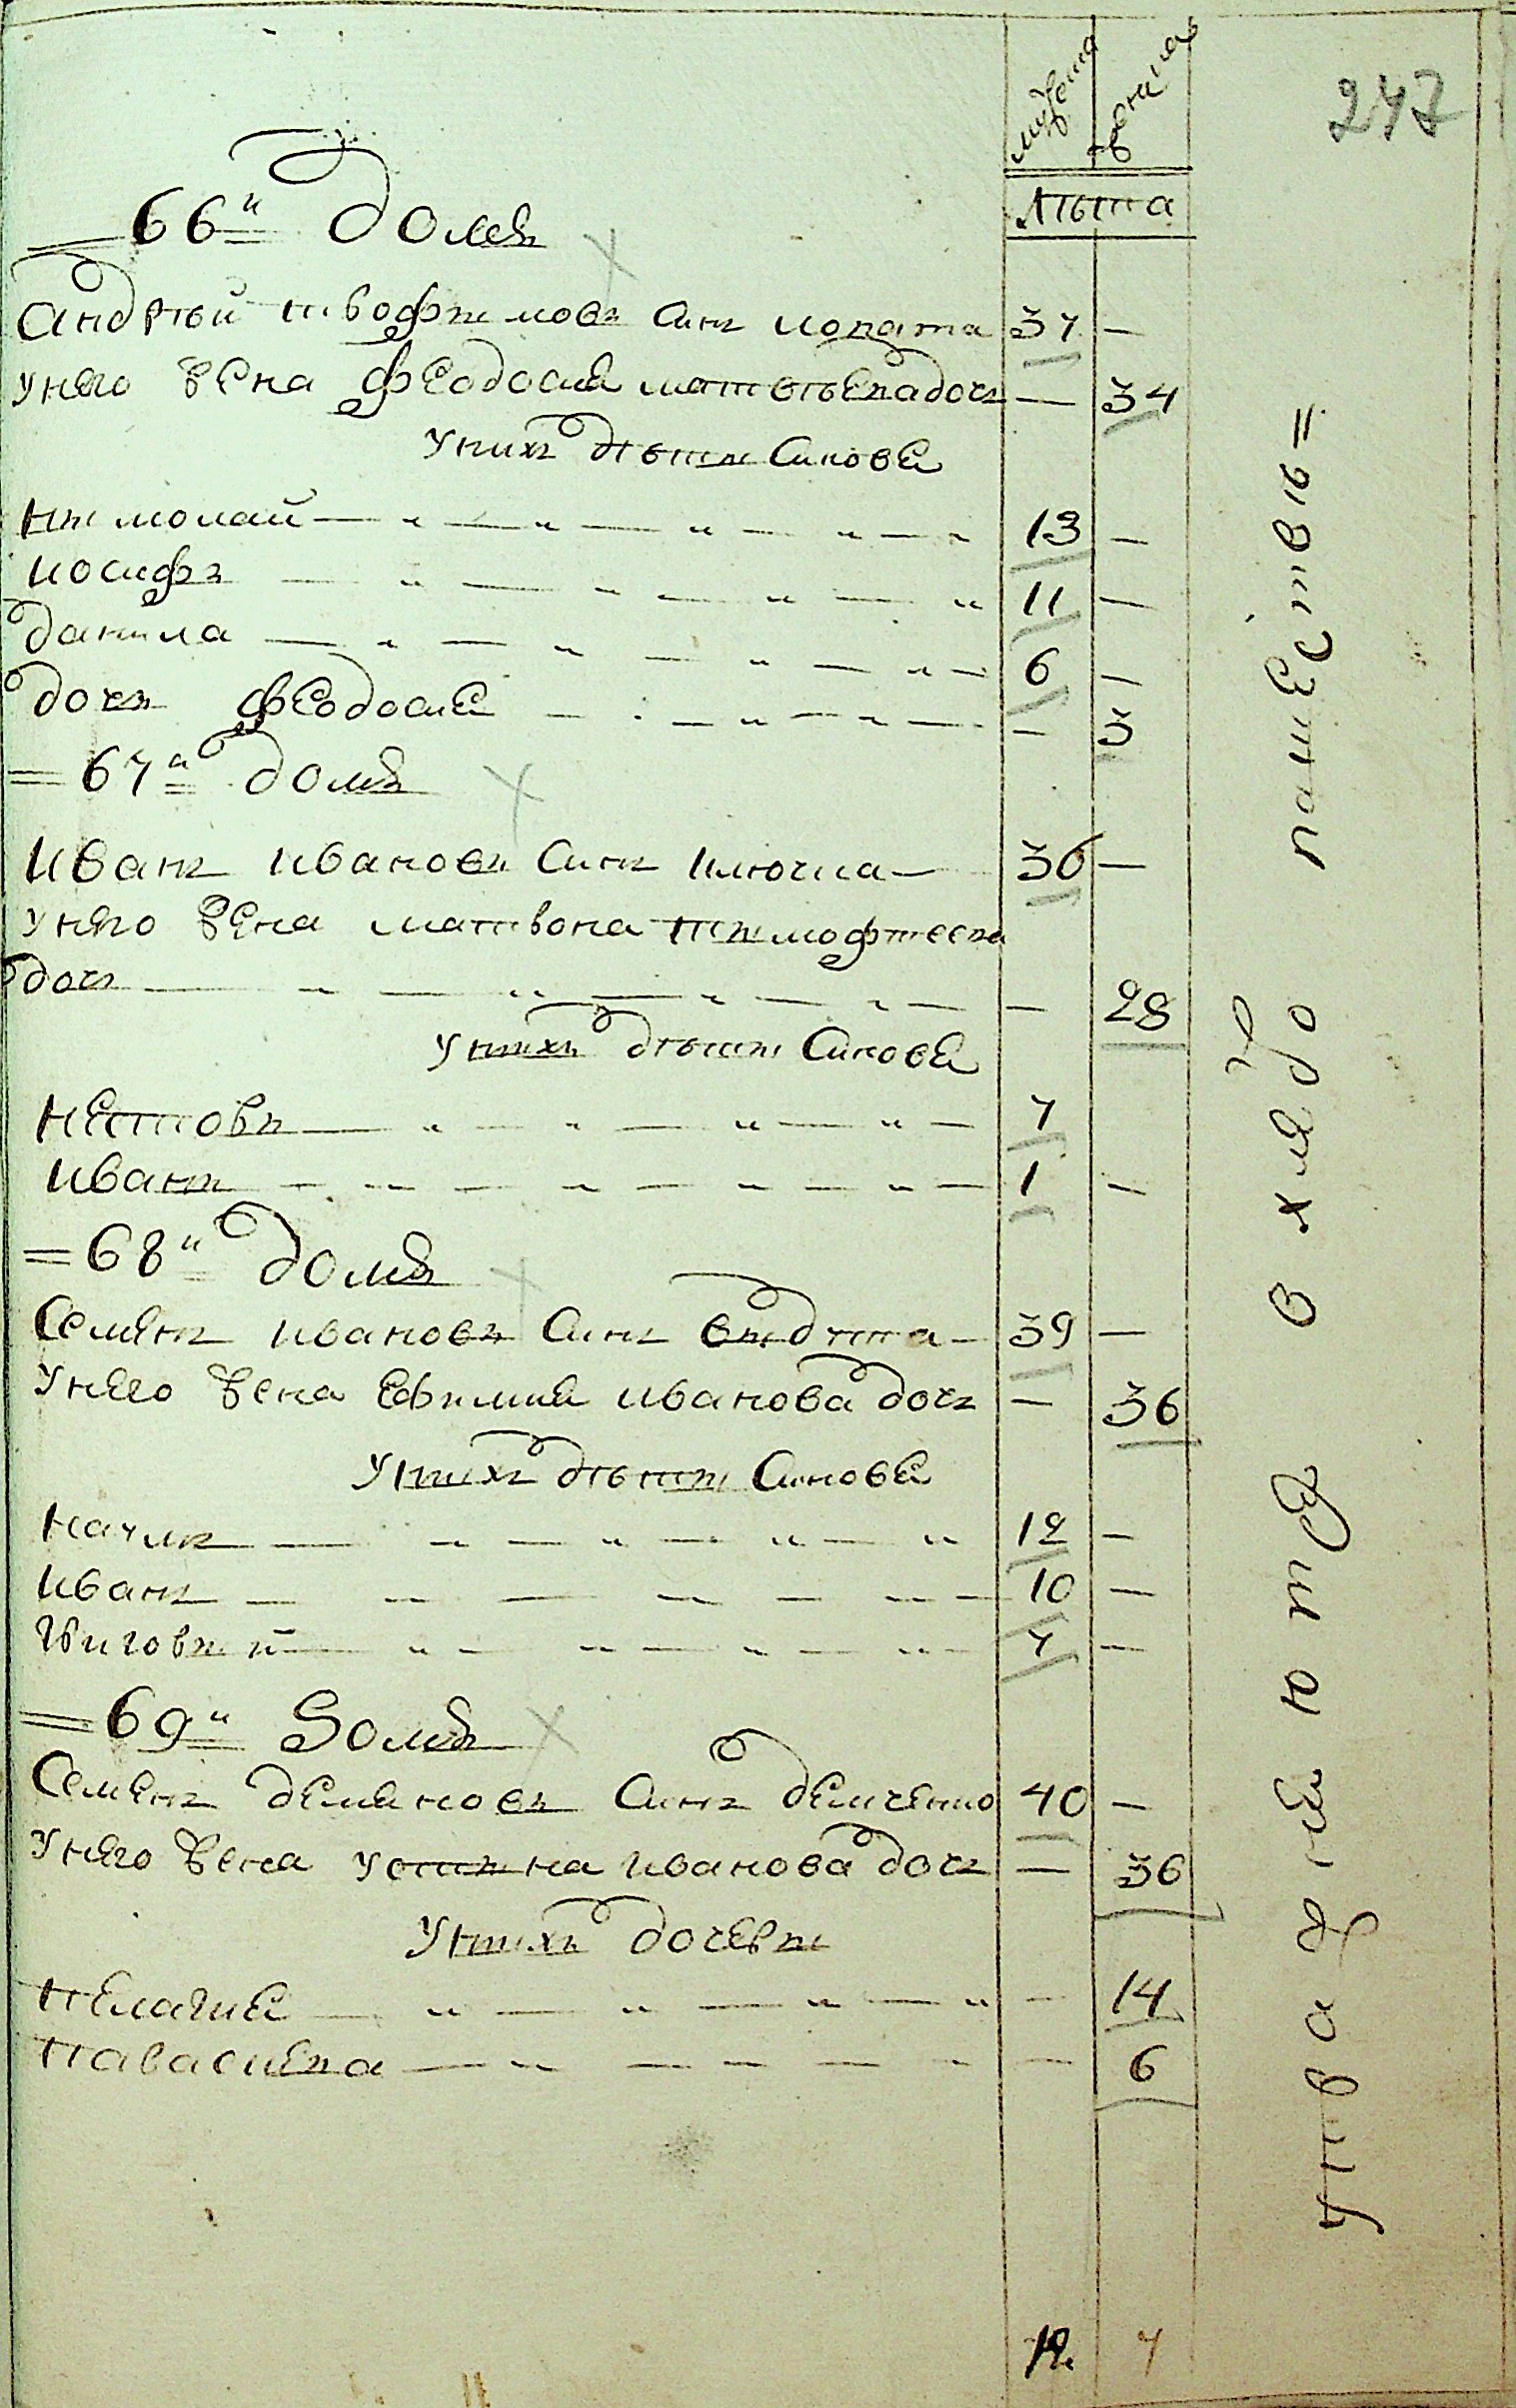 247
мужеска женска
лѣта
= 66й домъ
Андрѣй трофимовъ синъ лопата 37 —
унего жена феодосия матвѣева дочъ — 34
унихъ дѣти синове
николай — 13 —
иосифъ — 11 —
данила — 6 —
дочъ феодосия — — 3
= 67й домъ
Иванъ ивановъ синъ 30 —
унего жена матрона тимофеева
дочъ — — 28
унихъ дѣти синове
несторъ — 7
иванъ — 1 —
= 68й домъ
Семенъ ивановъ синъ 39 —
унего жена ефимия иванова дочъ — 36
унихъ дѣти синове
наумъ — 12 —
иванъ — 10 —
григорий — 7 —
= 69й домъ
Семенъ демяновъ синъ демченко 40 —
унего жена устина иванова дочъ — 36
унихъ дочери
пелагия — — 14
параскева — — 6
12. 7